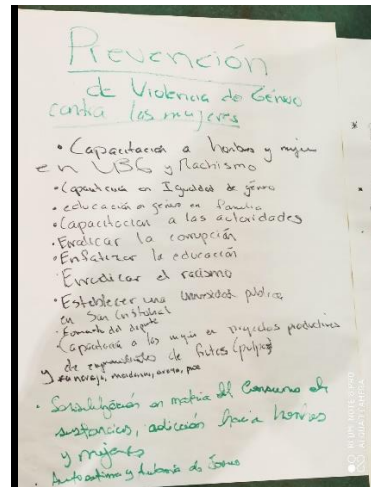 Prevención
de Violencia de Género
contra las mujeres
• Capacitación a hombres y mujeres
en VBG y Machismo
• Capacitación en Igualdad de género
• educación en género en familia
• Capacitación a las autoridades
• Erradicar la corrupción
• Enfatizar la educación
• Erradicar el racismo
• Establecer una universidad pública
en San Cristobal
• Fomento del deporte
Capacitación a las mujeres en proyectos productivos
y de de frutas (pulpas)
naranja,
• Sensibilización en materia del Consumo de
sustancias, adicción hacia hombres
y mujeres
• Autoestima y
REDMI NOTE 8 PRO
AI QUAD CAMERA